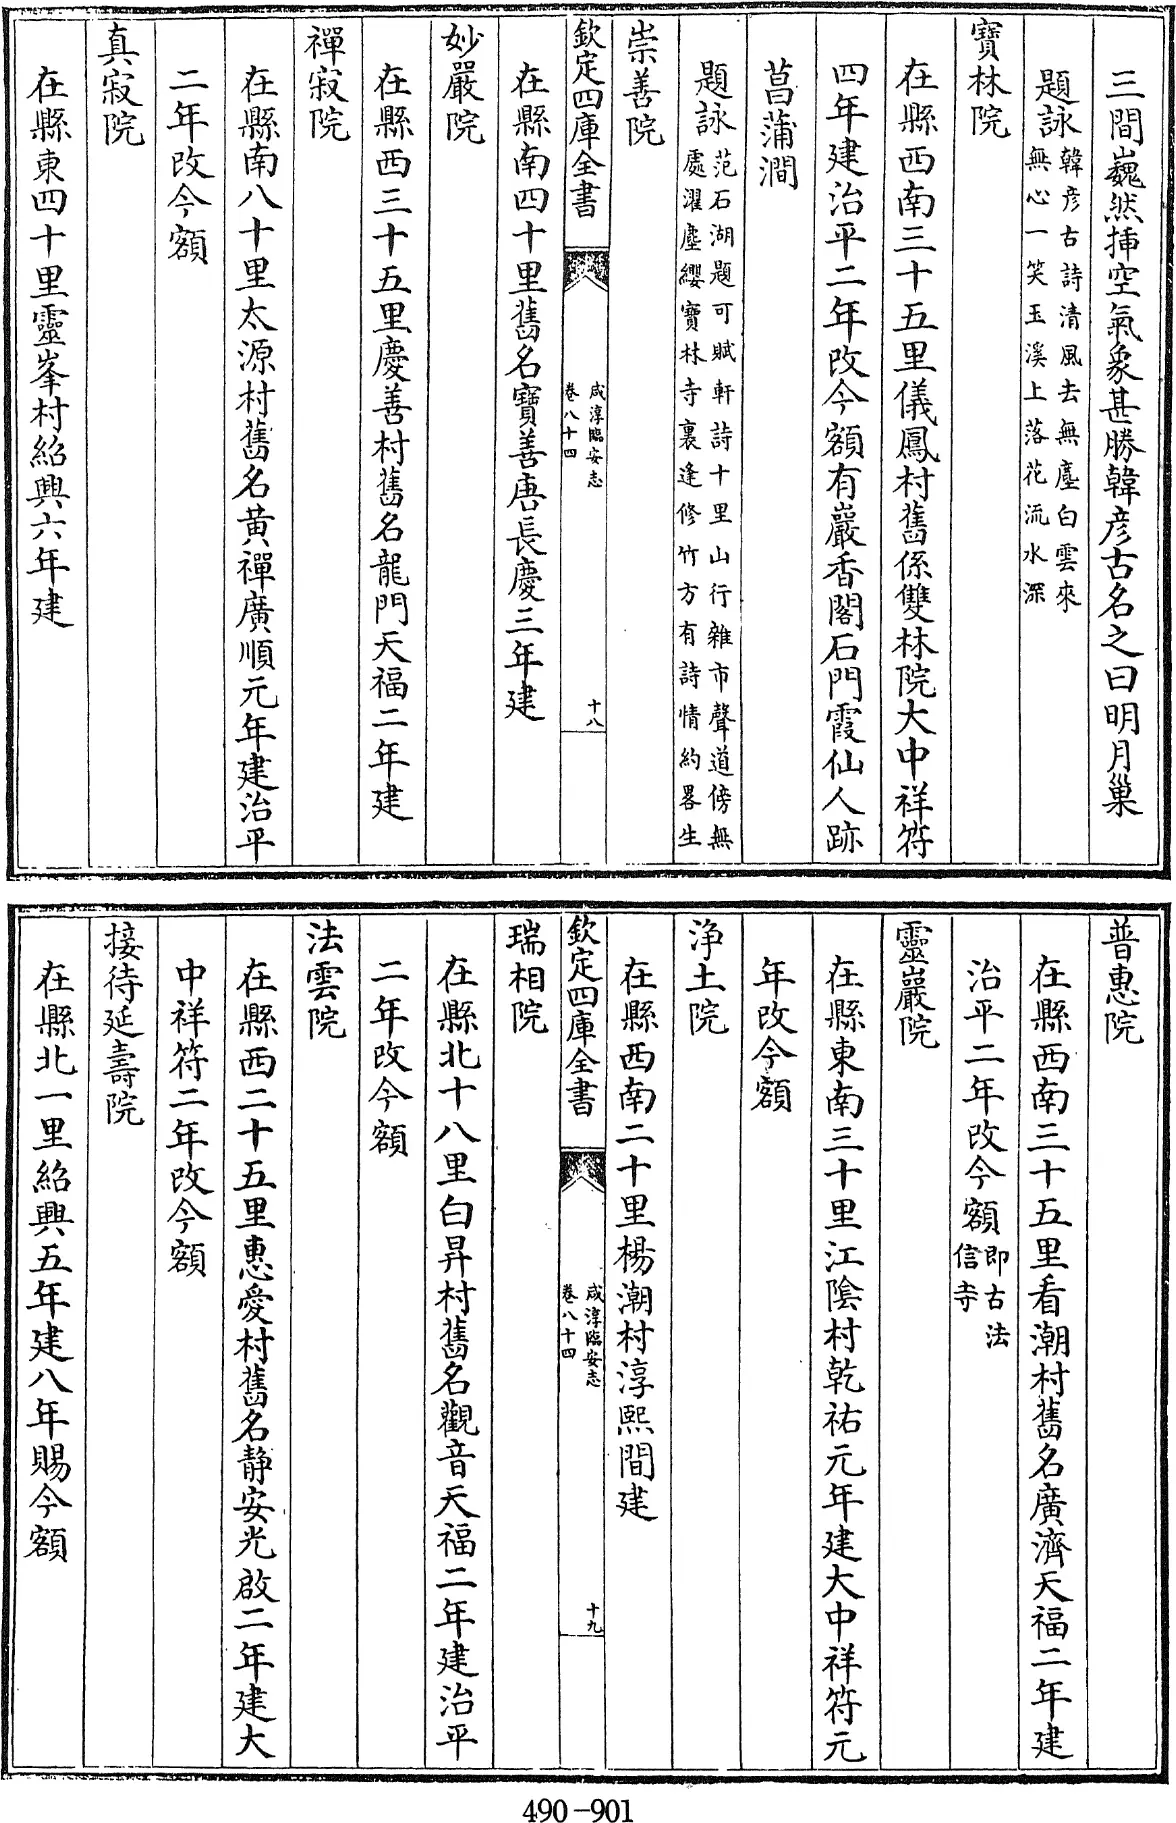 三間巍然揷空氣象甚勝韓彦古名之曰明月巢
題詠韓彦古詩清風去無塵白雲來
無心一笑玉溪上落花流水深
寶林院
在縣西南三十五里儀鳳村舊係雙林院大中祥符
四年建治平二年改今額有巖香閣石門霞仙人跡
菖蒲澗
題詠范石湖題可賦軒詩十里山行雜市聲道傍無
處濯塵纓寶林寺裏逢修竹方有詩情約畧生
崇善院
欽定四庫全書
咸淳臨安志
卷八十四
十八
在縣南四十里舊名寶善唐長慶三年建
妙嚴院
在縣西三十五里慶善村舊名龍門天福二年建
禪寂院
在縣南八十里太源村舊名黄禪廣順元年建治平
二年改今額
真寂院
在縣東四十里靈峯村紹興六年建
普惠院
在縣西南三十五里看潮村舊名廣濟天福二年建
治平二年改今額即古法
信寺
靈巖院
在縣東南三十里江陰村乾祐元年建大中祥符元
年改今額
淨土院
在縣西南二十里楊潮村淳熙間建
欽定四庫全書
咸淳臨安志
卷八十四
十九
瑞相院
在縣北十八里白昇村舊名觀音天福二年建治平
二年改今額
法雲院
在縣西二十五里惠愛村舊名静安光啟二年建大
中祥符二年改今額
接待延壽院
在縣北一里紹興五年建八年賜今額
490-901